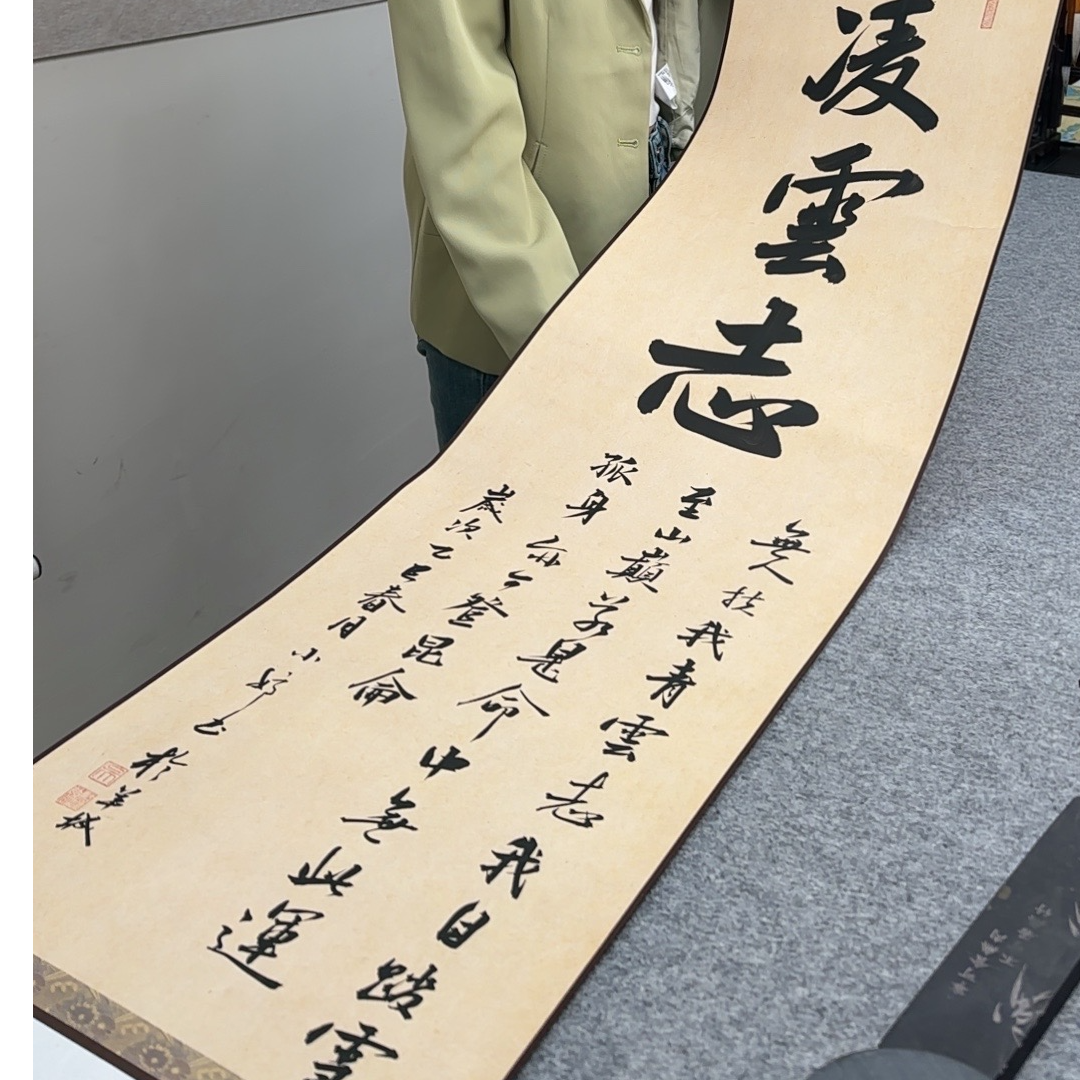 凌雲志
無人扶我青雲志我自踏雪
至山巔若是命中無此運
孤身亦可登昆侖
歲次乙巳春月小婷書於羊城